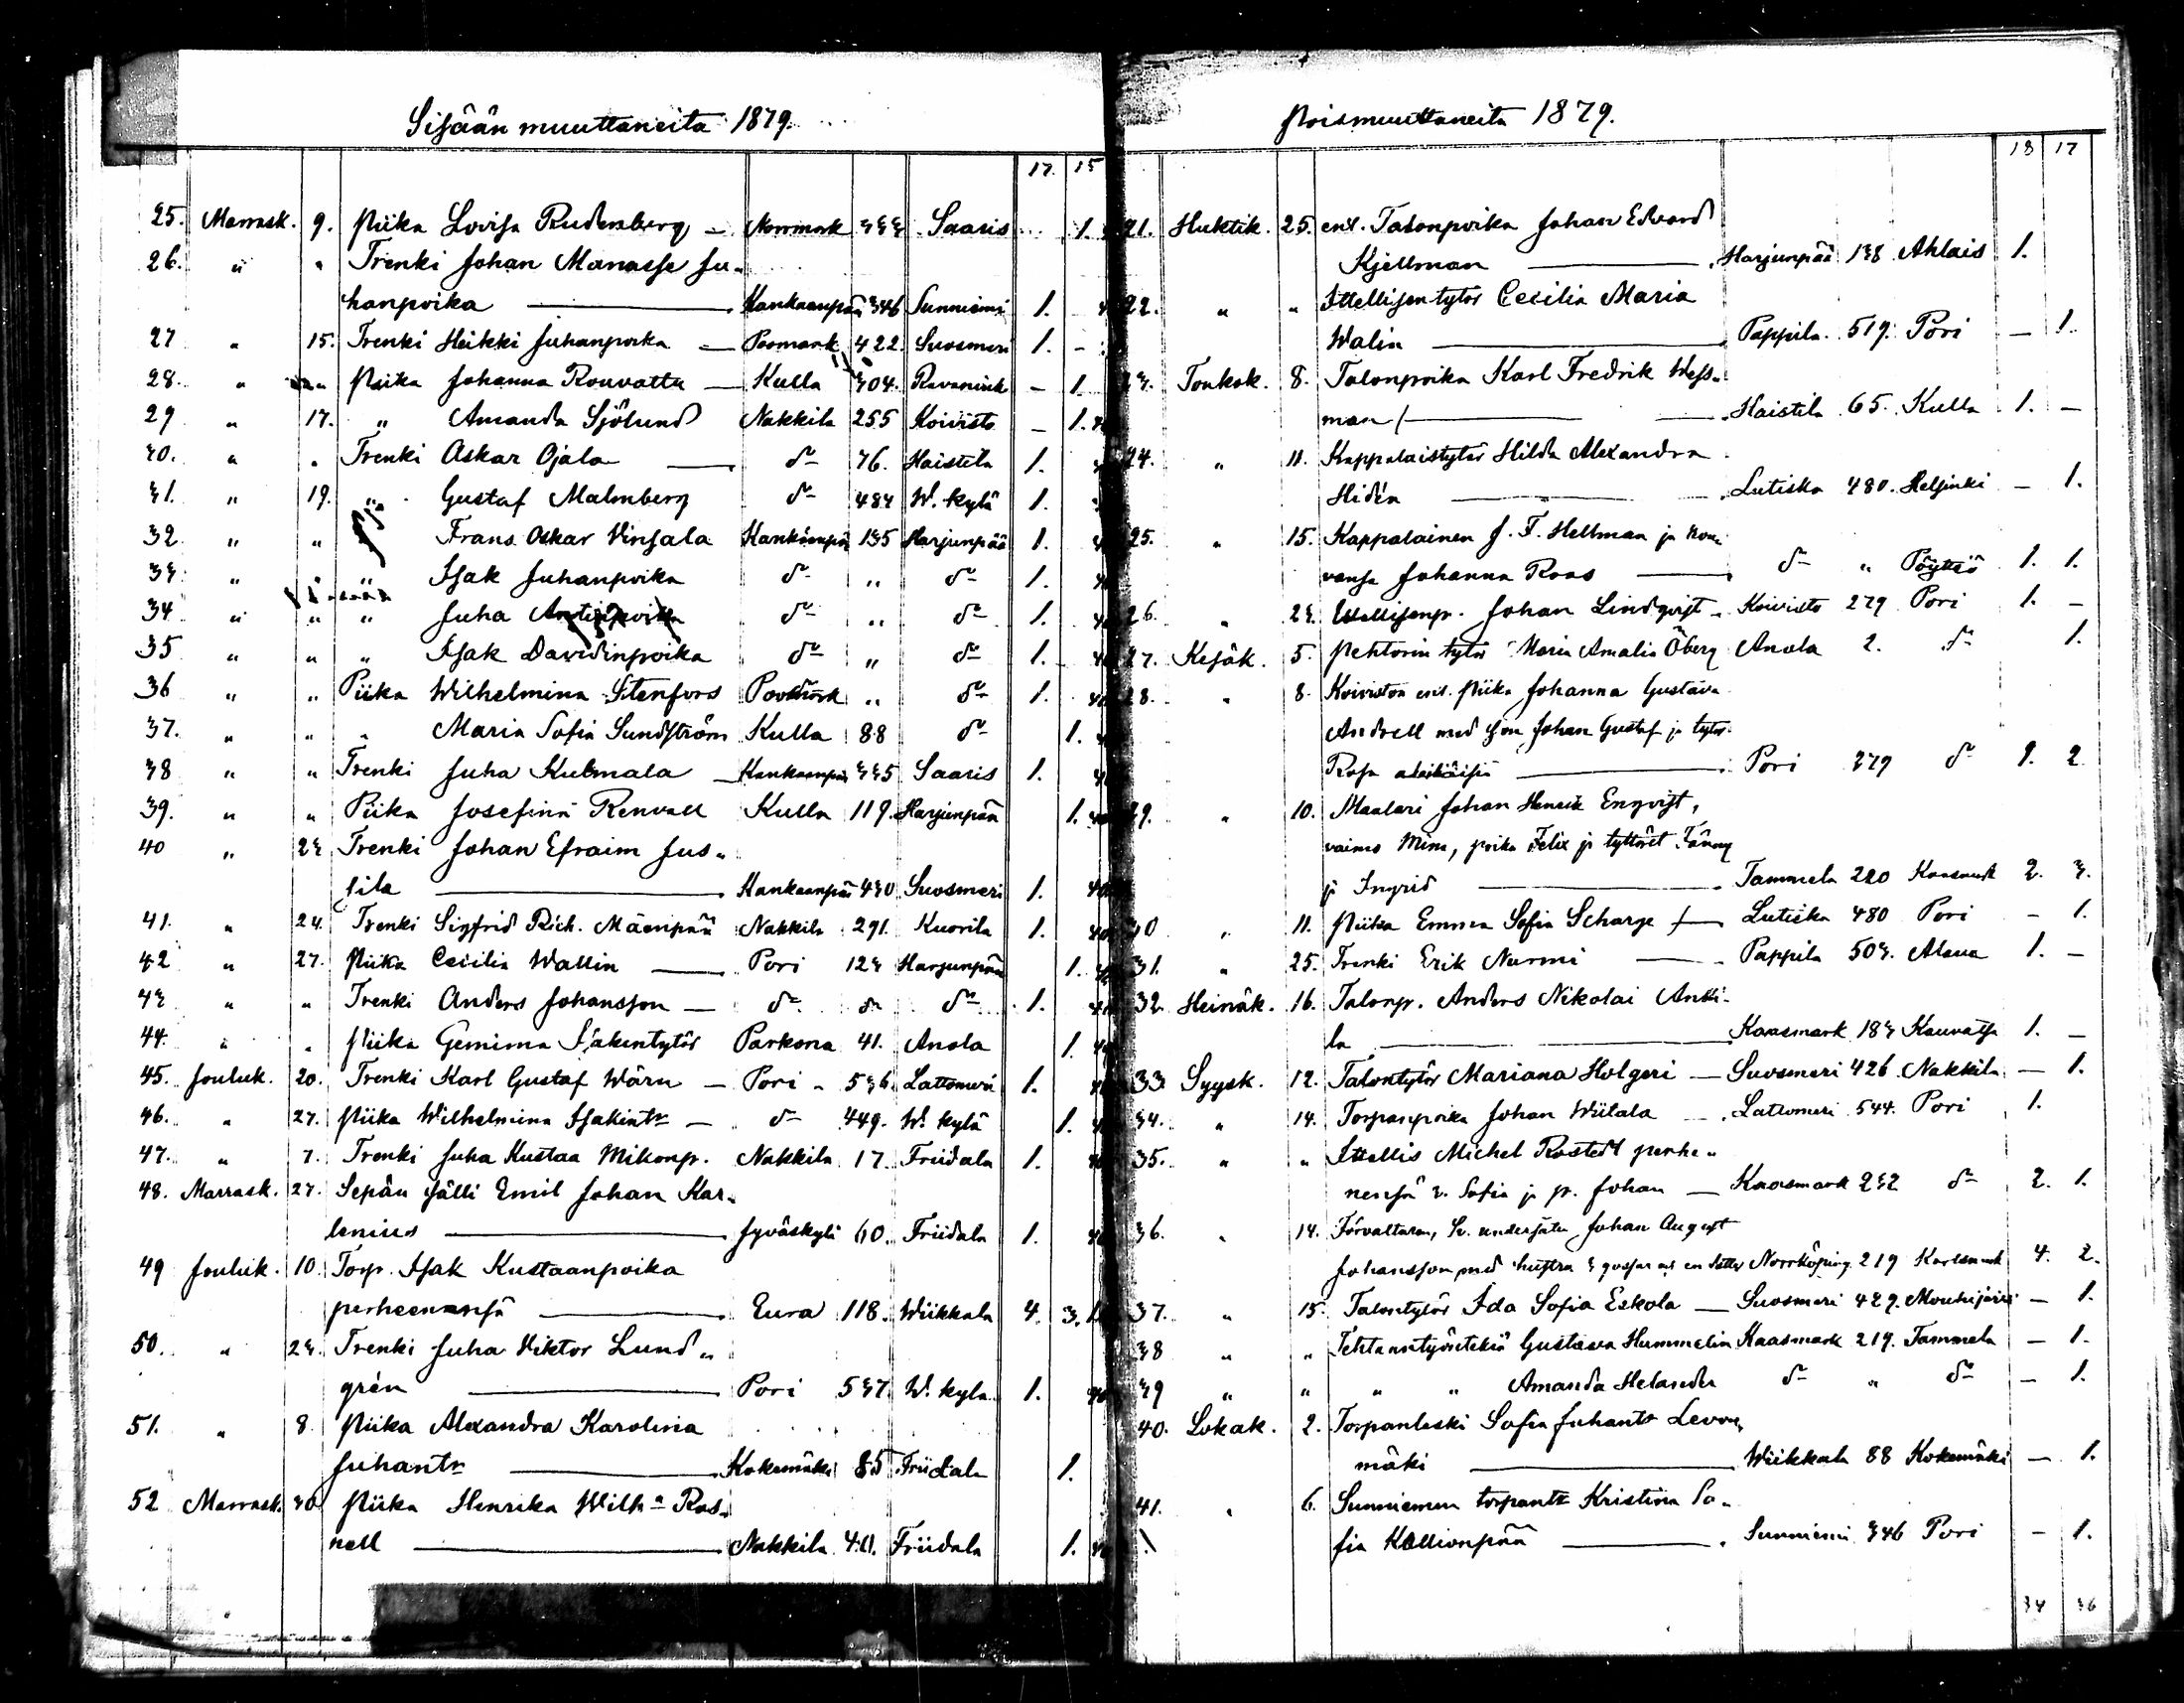 Sisään muuttaneita 1879.
17. 15
25. Marrask. 9. Piika Lovisa Rudenberg — Norrmark 333 Saaris 1.
26. " " Trenki Johan Manasse Ju-
hanpoika — Kankaanpää 346 Sunniemi 1.
27 " 15. Trenki Heikki Juhanpoika — Pormark 422. Suosmeri 1. -
28. " " Piika Johanna Rouvattu — Kulla 304. Ravanink - 1.
29 " 17. " Amanda Sjölund Nakkila 255 Koivisto - 1.
30. " " Trenki Oskar Ojala — do 76. Haistila 1.
31. " 19. " Gustaf Malmberg do 484 W. kylä 1.
32 " " Frans Oskar Vinsala Kankaanpää 135 Harjunpää 1.
33 " " " Isak Juhanpoika do " do 1.
34 " " " Juha do " do 1.
35 " " " Isak Davidinpoika do " do 1.
36 " " Piika Wilhelmina Stenfors " do 1.
37. " " " Maria Sofia Sundström Kulla 88 do 1.
38 " " Trenki Juha Kulmala — Kankaanpää 335 Saaris 1.
39. " " Piika Josefina Renvall Kulla 119. Harjunpää 1.
40 " 23 Trenki Johan Efraim Jus-
sila — Kankaanpää 430 Suosmeri 1.
41. " 24. Trenki Sigfrid Rich. Mäenpää Nakkila 291. Kuorila 1.
42 " 27. Piika Cecilia Wallin — Pori 123 Harjunpää 1.
43 " " Trenki Anders Johansson — do do do 1.
44. " " Piika Gemima Isakintytär Parkona 41. Anola 1.
45. Jouluk. 20. Trenki Karl Gustaf Wärn — Pori - 536 Lattomeri 1.
46. " 27. Piika Wilhelmina Isakintr — do 449. W. kylä 1.
47. " 7. Trenki Juha Kustaa Mikonp. Nakkila 17 Friidala 1.
48. Marrask. 27. Sepän sälli Emil Johan Kar-
lenius — Jyväskylä 60. Friidala 1.
49 Jouluk. 10. Torp. Isak Kustaanpoika
perheenensä — Eura 118. Wiikkala 4. 3.
50. " 23. Trenki Juha Viktor Lund-
grén — Pori 537. W. kyla 1.
51. " 8. Piika Alexandra Karolina
Juhantr — Kokemäki 85 Friidala 1.
52 Marrask. 30. Piika Henrika Wilh:a Ros-
nell — Nakkila 40. Friidala 1.
Poismuuttaneita 1879.
18 17
21. Huktik. 25. ent. Talonpoika Johan Edvard
Kjellman — Harjunpää 138 Ahlais 1.
22. " " Ittellisen tytär Cecilia Maria
Walin — Pappila 519. Pori — 1.
23. Toukok. 8. Talonpoika Karl Fredrik Wess-
man — Haistila 65. Kulla 1. —
24. " 11. Kappalaistytär Hilda Alexandra
Hidén — Lutiska 480. Helsinki — 1.
25. " 15. Kappalainen J. F. Hellman ja rou-
vansa Johanna Roos — do " Pöytiö 1. 1.
26. " 23. Ittellisenp. Johan Lindqvist — Koivisto 279 Pori 1. —
27. Kesäk. 5. Pehtorin tytär Maria Amalia Öberg Anola 2. do 1.
28. " 8. Koiviston ent. Piika Johanna Gustava
Andrell med son Johan Gustaf ja tytär
Rosa — Pori 279 do 1. 2
29. " 10. Maalari Johan Henrik Enqvist,
vaimo Mina, poika Felix ja tyttäret Fanny
ja Ingrid — Tammela 220 Kaasmark 2. 3.
30 " 11. Piika Emma Sofia Scharge — Lutiska 480 Pori - 1.
31. " 25. Trenki Erik Nurmi — Pappila 503. Alaua 1. —
32. Heinäk. 16. Talonp. Anders Nikolai Antti-
la — Kaasmark 183 Kauvatsa 1. —
33. Syysk. 12. Talontytär Mariana Holgeri — Suosmeri 426. Nakkila — 1.
34. " 14. Torpanpoika Johan Wiitala — Lattomeri 544. Pori 1.
35. " " Ittellis Michel Rostedt perhe-
nensä v. Sofia ja p. Johan — Kaasmark 232 do 2. 1.
36. " 14. Förvaltaren, Sv. undersåten Johan August
Johansson med hustru 3 gossar och en dotter Norrköping 219 Karlsmark 4. 2.
37. " 15. Talontytär Ida Sofia Eskola — Suosmeri 429. Mouhijärvi — 1.
38 " " Tehtaantyöntekiä Gustava Hummelin Kaasmark 219. Tammela — 1.
39 " " " " Amanda Helander do " do — 1.
40. Lokak. 2. Torpanleski Sofia Juhantr Levon-
mäki — Wiikkala 88 Kokemäki — 1.
41. " 6. Sunniemen torpantr Kristina So-
fia Kallionpää — Sunniemi 346 Pori — 1.
34 36